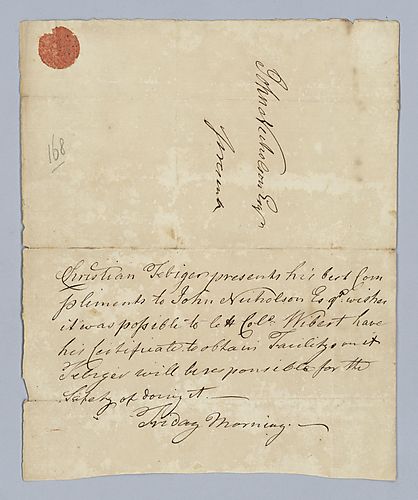 John Nicholson Esqr
Present
168
Christian Febiger presents his best Com
pliments to John Nicholson Esqr. wishes
it was possible to lett Colo. Wibert have
his Certificate to obtain Facilitys on it
Febiger will be responsible for the
Safety of doing it.—
Friday Morning.—